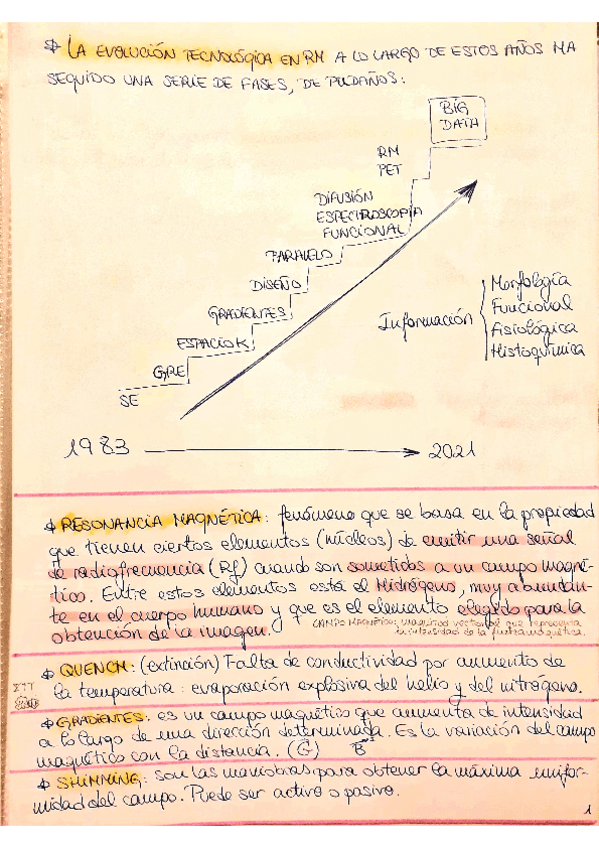 LA EVOLUCIÓN TECNOLÓGICA EN RM A LO LARGO DE ESTOS AÑOS HA
SEGUIDO UNA SERIE DE FASES, DE PELDAÑOS:
BIG
DATA
RM
PET
DIFUSIÓN
ESPECTROSCOPIA
FUNCIONAL
PARALELO
DISEÑO
GRADIENTES
ESPACIO K
GRE
SE
Información
Morfología
Funcional
Fisiológica
Histoquímica
1983 → 2021
RESONANCIA MAGNÉTICA: fenómeno que se basa en la propiedad
que tienen ciertos elementos (núcleos) de emitir una señal
de radiofrecuencia (Rf) cuando son sometidos a un campo magné-
tico. Entre estos elementos está el Hidrógeno, muy abundan-
te en el cuerpo humano y que es el elemento elegido para la
obtención de la imagen. CAMPO MAGNÉTICO: magnitud vectorial que representa
la intensidad de la fuerza magnética.
QUENCH: (extinción) Falta de conductividad por aumento de
la temperatura: evaporación explosiva del helio y del nitrógeno.
GRADIENTES: es un campo magnético que aumenta de intensidad
a lo largo de una dirección determinada. Es la variación del campo
magnético con la distancia. (G) B
SHIMMING: son las maniobras para obtener la máxima unifor-
midad del campo. Puede ser activo o pasivo.
1